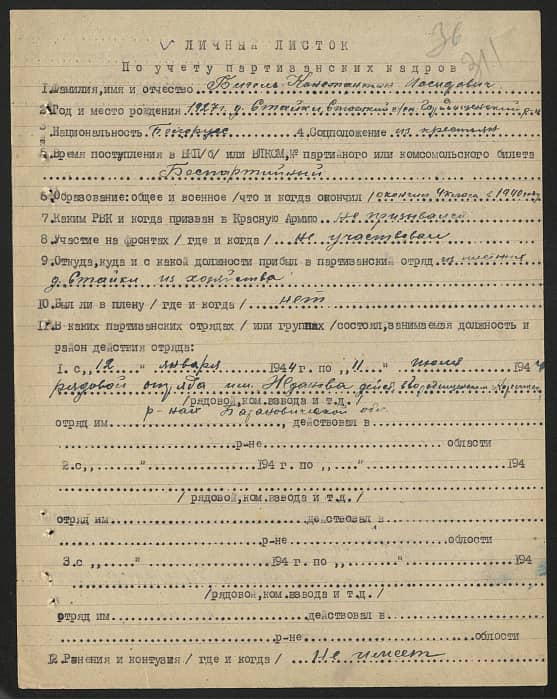 36
311
ЛИЧНЫЙ ЛИСТОК
По учету партизанских кадров
1.Фамилия,имя и отчество Константин
2.Год и место рождения 1927г. д. Стайки
3.Национальность Белорусс 4.Соцположение из крестьян
5.Время поступления в ВКП/б/ или ВЛКСМ,№ партийного или комсомольского билета
Беспартийный
6.Образование:общее и военное /что и когда окончил/ окончил 4 класса в 1940 году
7.Каким РВК и когда призван в Красную Армию Не призывался
8.Участие на фронтах /где и когда/ Не участвовал
9.Откуда,куда и с какой должности прибыл в партизанский отряд из
д. Стайки из хозяйства
10.Был ли в плену /где и когда/ нет
11.В каких партизанских отрядах /или группах/состоял,занимаемая должность и
район действия отряда:
1.с„12" января 1944г. по „11" июля 1944
рядовой отряда им. Жданова
/рядовой,ком.взвода и т.д./
р-нах Барановической обл.
отряд им. , действовал в
р-не области
2.с„ " 194 г. по „ " 194
/рядовой,ком.взвода и т.д./
отряд им действовал в
р-не области
3.с „ " 194 г. по „ " 194
/рядовой,ком.взвода и т.д./
отряд им действовал в
р-не области
12.Ранения и контузия /где и когда/ Не имеет